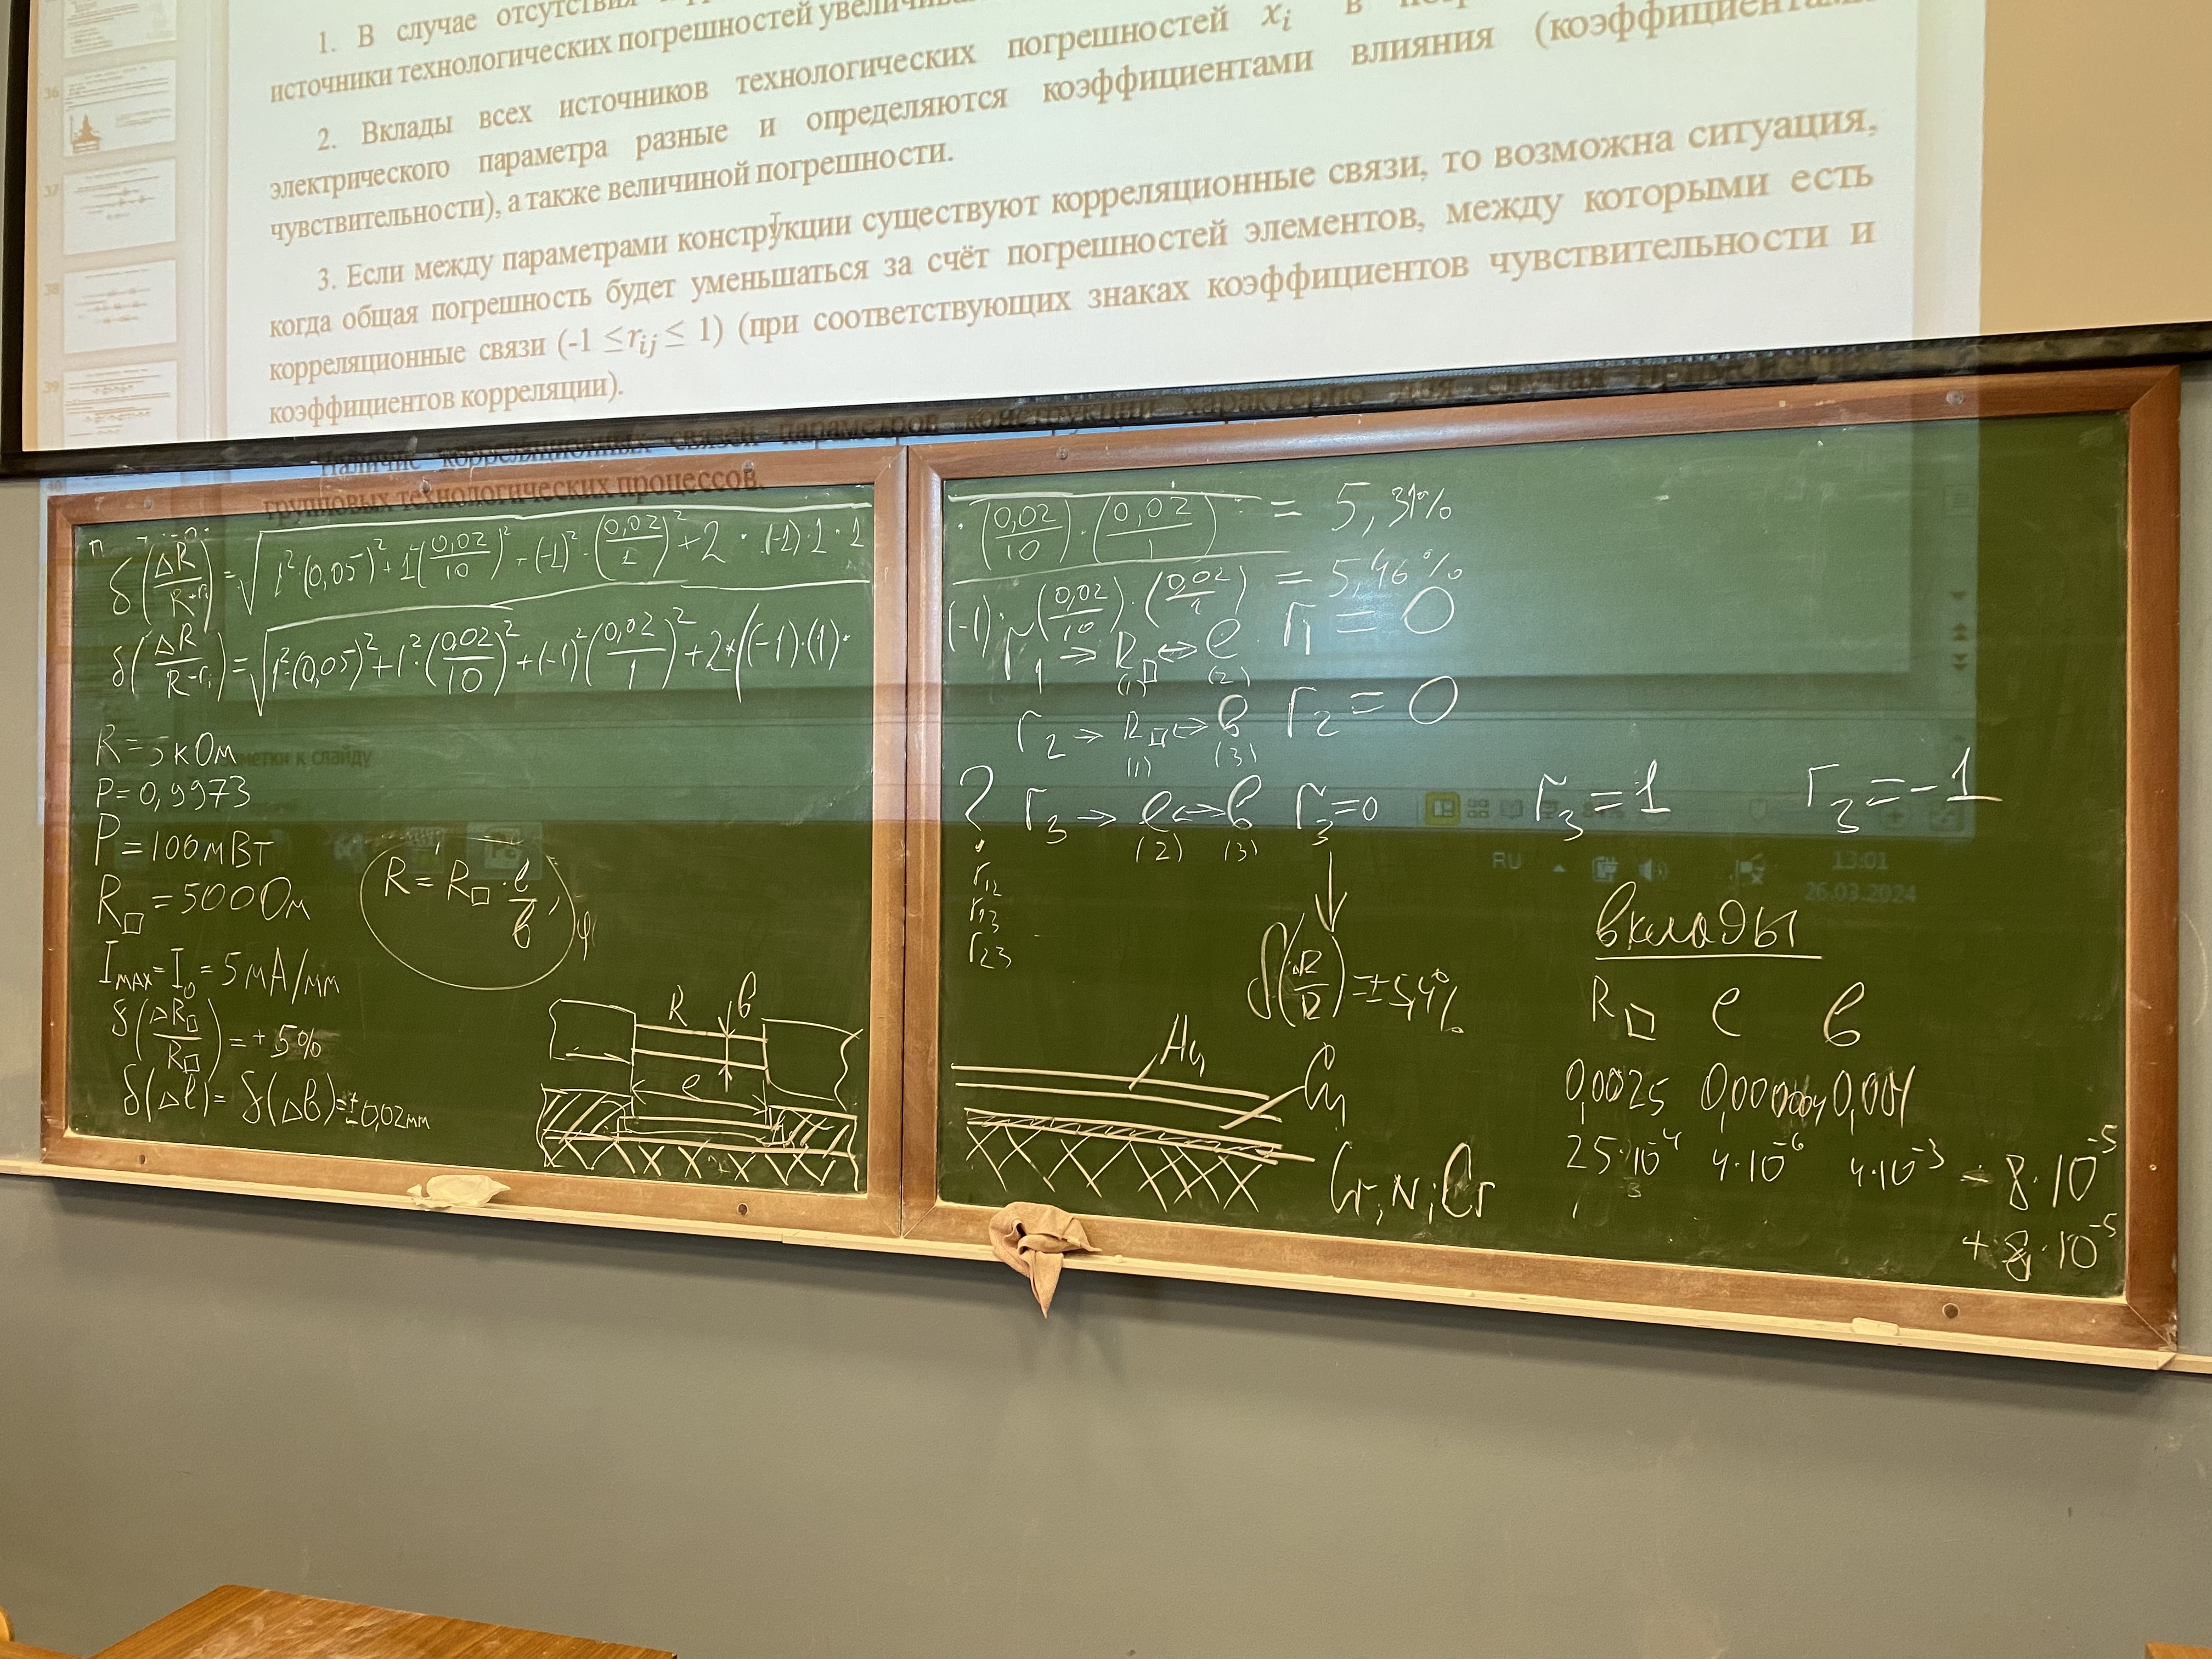 36
37
38
39
1. В случае отсутствия
источники технологических погрешностей
2. Вклады всех источников технологических погрешностей xᵢ в
электрического параметра разные и определяются коэффициентами влияния (коэффициентами
чувствительности), а также величиной погрешности.
3. Если между параметрами конструкции существуют корреляционные связи, то возможна ситуация,
когда общая погрешность будет уменьшаться за счёт погрешностей элементов, между которыми есть
корреляционные связи (-1 ≤ rᵢⱼ ≤ 1) (при соответствующих знаках коэффициентов чувствительности и
коэффициентов корреляции).
Наличие корреляционных связей параметров конструкции характерно для случая
групповых технологических процессов.
δ(ΔR/R +r) = √(1²·(0,05)² + 1²(0,02/10)² + (-1)²·(0,02/1)² + 2·(-1)·1·1
·(0,02/10)·(0,02/1) = 5,31%
δ(ΔR/R -r) = √(1²·(0,05)² + 1²·(0,02/10)² + (-1)²(0,02/1)² + 2·((-1)·(1)·
(-1)·(0,02/10)·(0,02/1) = 5,46%
R = 5 кОм
P = 0,9973
P = 100 мВт
R□ = 500 Ом
Iмах = I₀ = 5 мА/мм
δ(ΔR□/R□) = ± 5%
δ(Δl) = δ(Δb) = ±0,02 мм
R = R□ · l/b, φ
R b
l
заметки к слайду
r₁ → R□ ↔ l r₁ = 0
(1) (2)
r₂ → R□ ↔ b r₂ = 0
(1) (3)
? r₃ → l ↔ b r₃ = 0 r₃ = 1 r₃ = -1
(2) (3)
r₁₂
r₁₃
r₂₃
δ(ΔR/R) = ±5,4%
RU
13:01
26.03.2024
Au
Cu
Cr, Ni, Cr
вклады
R□ l b
0,0025 0,000004 0,004
25·10⁻⁴ 4·10⁻⁶ 4·10⁻³ - 8·10⁻⁵
+ 8·10⁻⁵